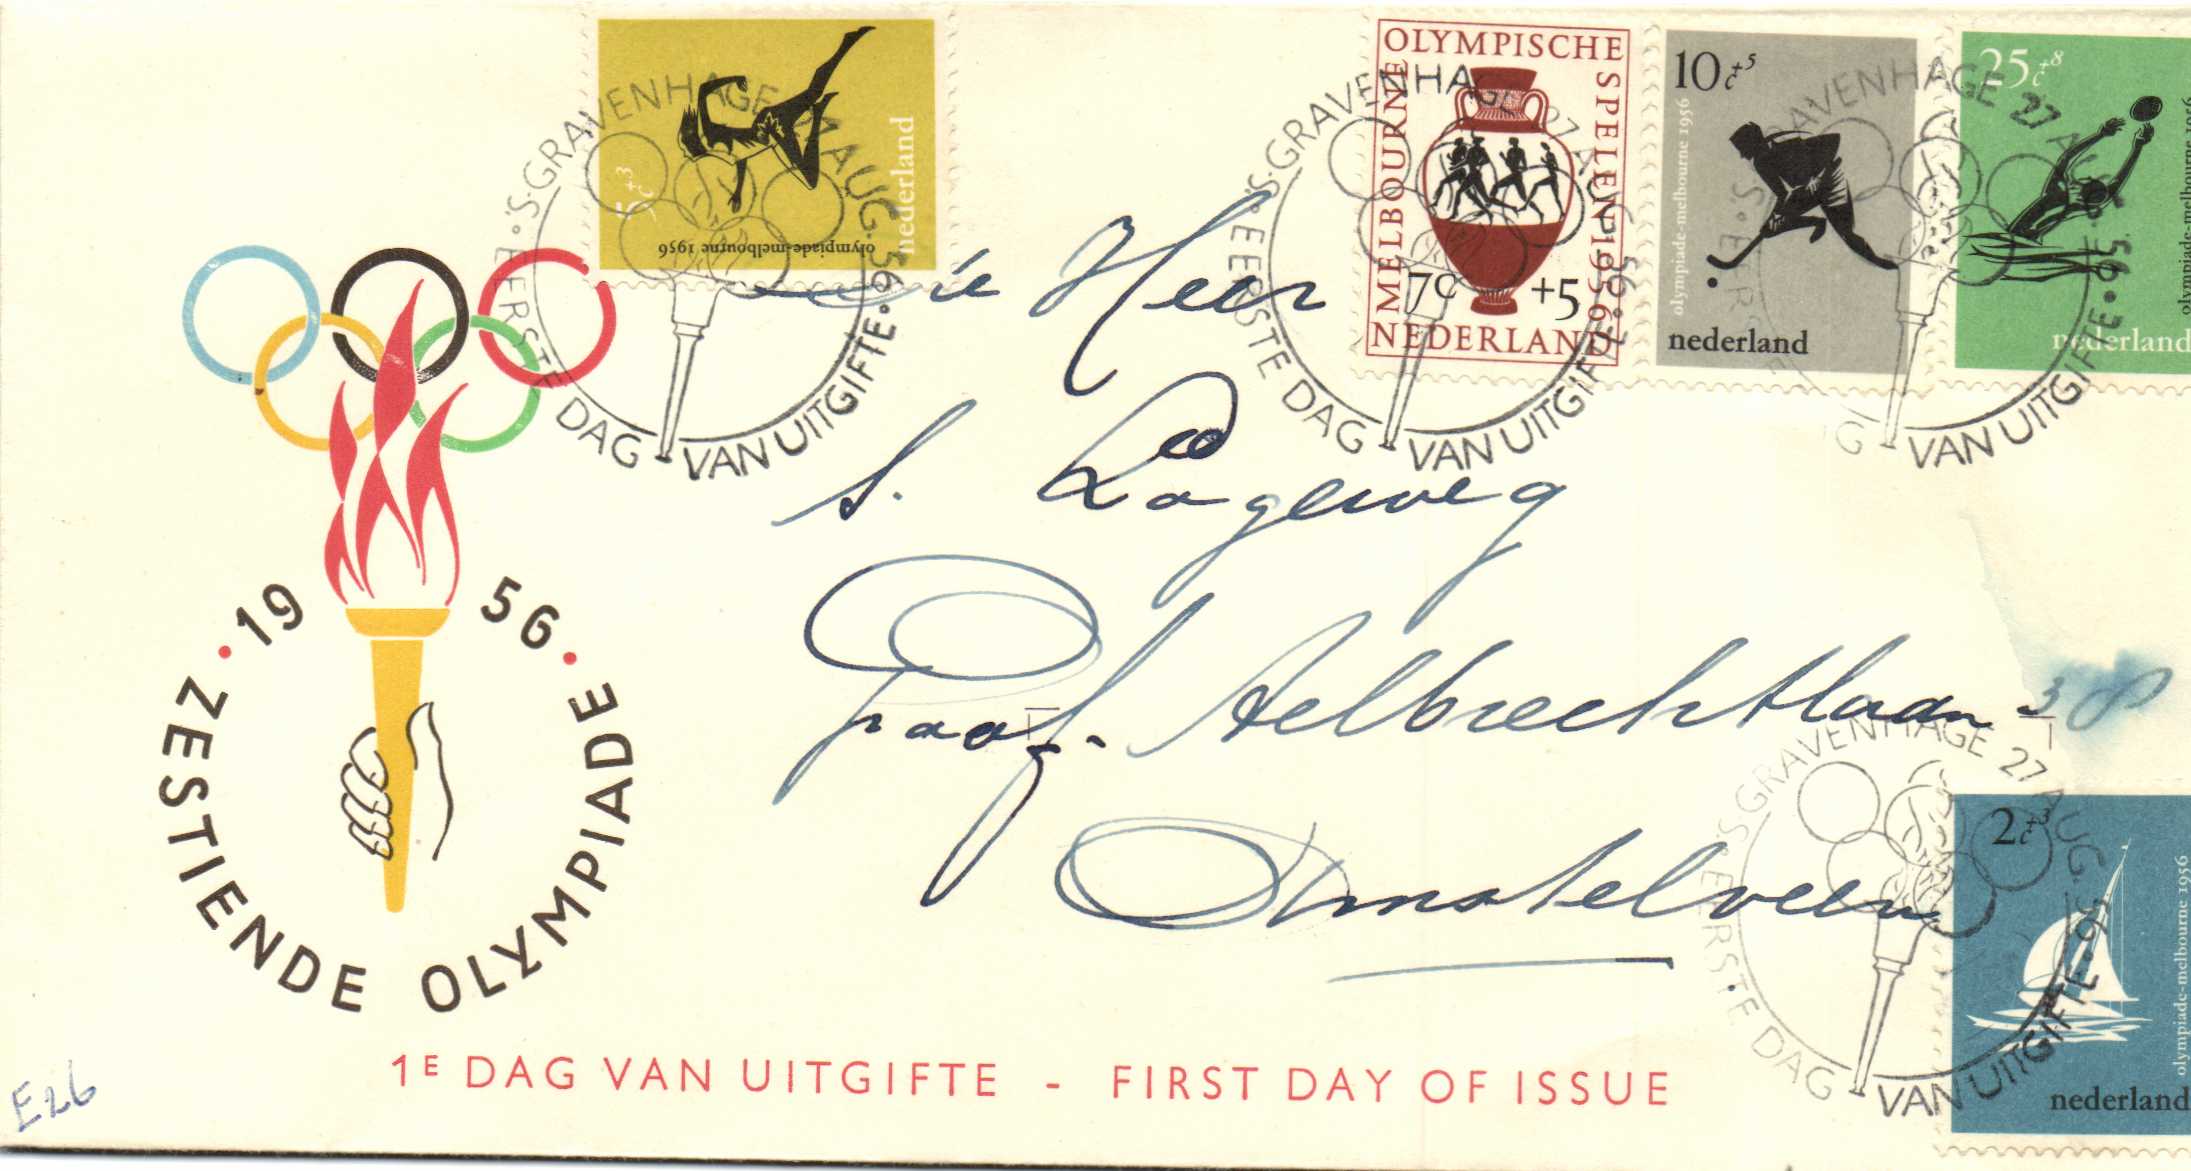 5c+3
olympiade-melbourne 1956
nederland
OLYMPISCHE
SPELEN 1956
MELBOURNE
7c +5
NEDERLAND
10c+5
olympiade-melbourne 1956
nederland
25c+8
olympiade-melbourne 1956
nederland
'S-GRAVENHAGE 27 AUG. 56
EERSTE DAG VAN UITGIFTE
'S-GRAVENHAGE 27 AUG. 56
EERSTE DAG VAN UITGIFTE
'S-GRAVENHAGE 27 AUG. 56
VAN UITGIFTE
Heer
S. Lageweg
Graaf Aelbrechtlaan 38
Amstelveen
1956
ZESTIENDE OLYMPIADE
'S-GRAVENHAGE 27 AUG. 56
EERSTE DAG VAN UITGIFTE
2c+3
olympiade-melbourne 1956
nederland
1E DAG VAN UITGIFTE - FIRST DAY OF ISSUE
E26